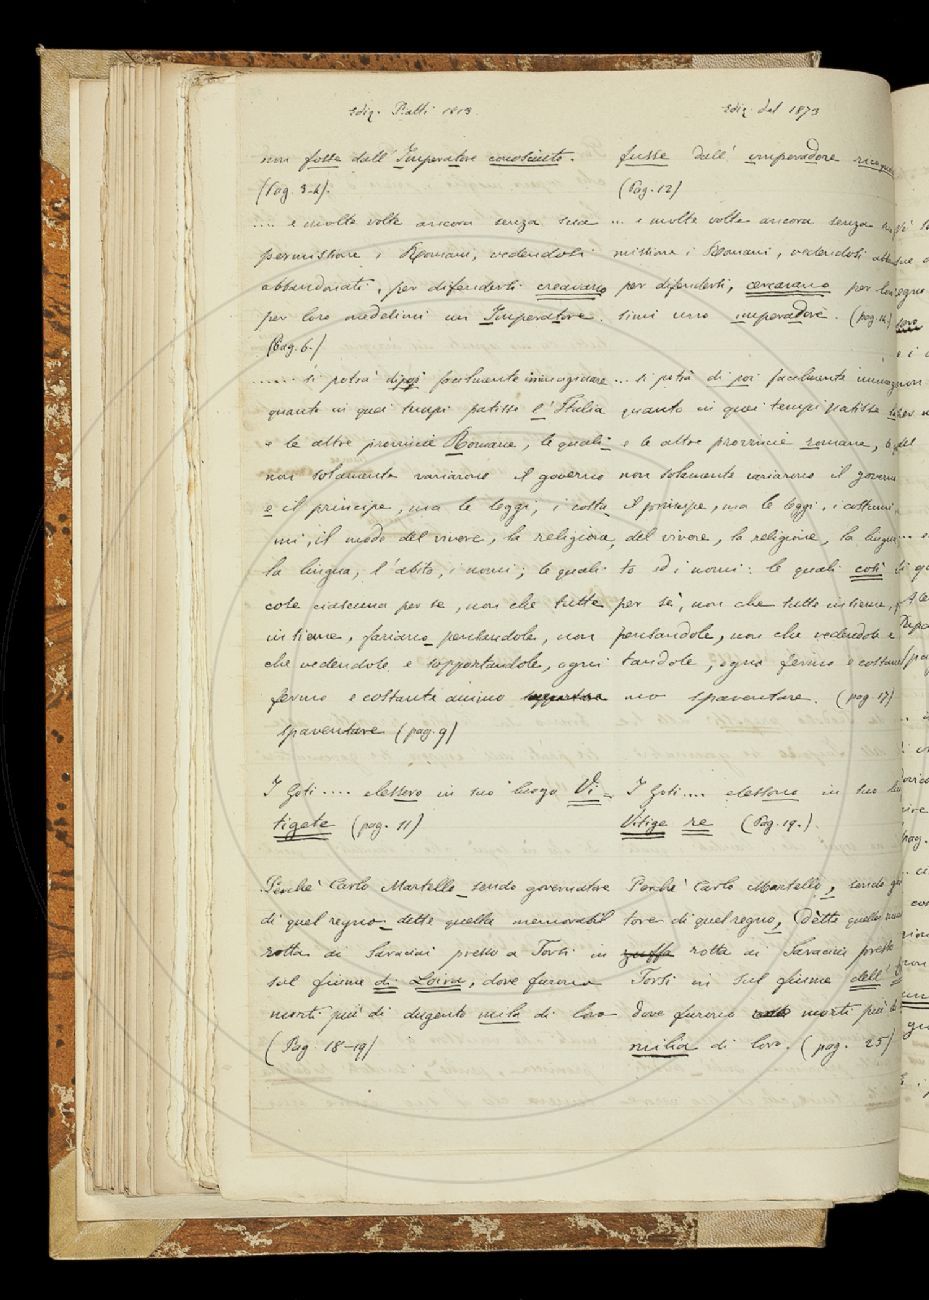 Ediz. Piatti 1813.
non fosse dall' Imperatore conosciuto.
(Pag. 3-4).
.... e molte volte ancora senza sua
permissione i Romani, vedendosi
abbandonati, per difendersi creavano
per loro medesimi un Imperatore.
(Pag. 6.)
...... si potrà dipoi facilmente immaginare
quanto in quei tempi patisse l' Italia
e le altre provincie Romane, le quali
non solamente variarono il governo
e il principe, ma le leggi, i costu
mi, il modo del vivere, la religione,
la lingua, l' abito, i nomi; le quali
cose ciascuna per se, non che tutte
insieme, fariano, pensandole, non
che vedendole e sopportandole, ogni
fermo e costante animo
spaventare (pag. 9)
I Goti .... elessero in suo luogo Vi-
tigete (pag. 11)
Perchè Carlo Martello sendo governatore
di quel regno dette quella memorabil
rotta di Saracini presso a Torsi in
sul fiume di Loira, dove furono
morti più di dugento mila di loro
(Pag. 18-19)
Ediz. del 1873
fusse dall' imperadore
(Pag. 12)
... e molte volte ancora senza
missione i Romani, vedendosi
per difendersi, cercarono per
simi uno imperadore. (pag. 14)
... si potrà di poi facilmente
quanto in quei tempi patisse
e le altre provincie romane,
non solamente variarono il governo
il principe, ma le leggi, i costumi
del vivere, la religione, la lingua
to ed i nomi: le quali cose
per sè, non che tutte insieme,
pensandole, non che vedendole e
tandole, ogni fermo e costante
mo spaventare. (pag. 17)
I Goti .... elessono in suo
Vitige re (Pag. 19.)
Perchè Carlo Martello, sendo
tore di quel regno, dètte quella
zuffa rotta di Saracini presso
Torsi in sul fiume dell'
dove furono morti più
milia di loro. (pag. 25)